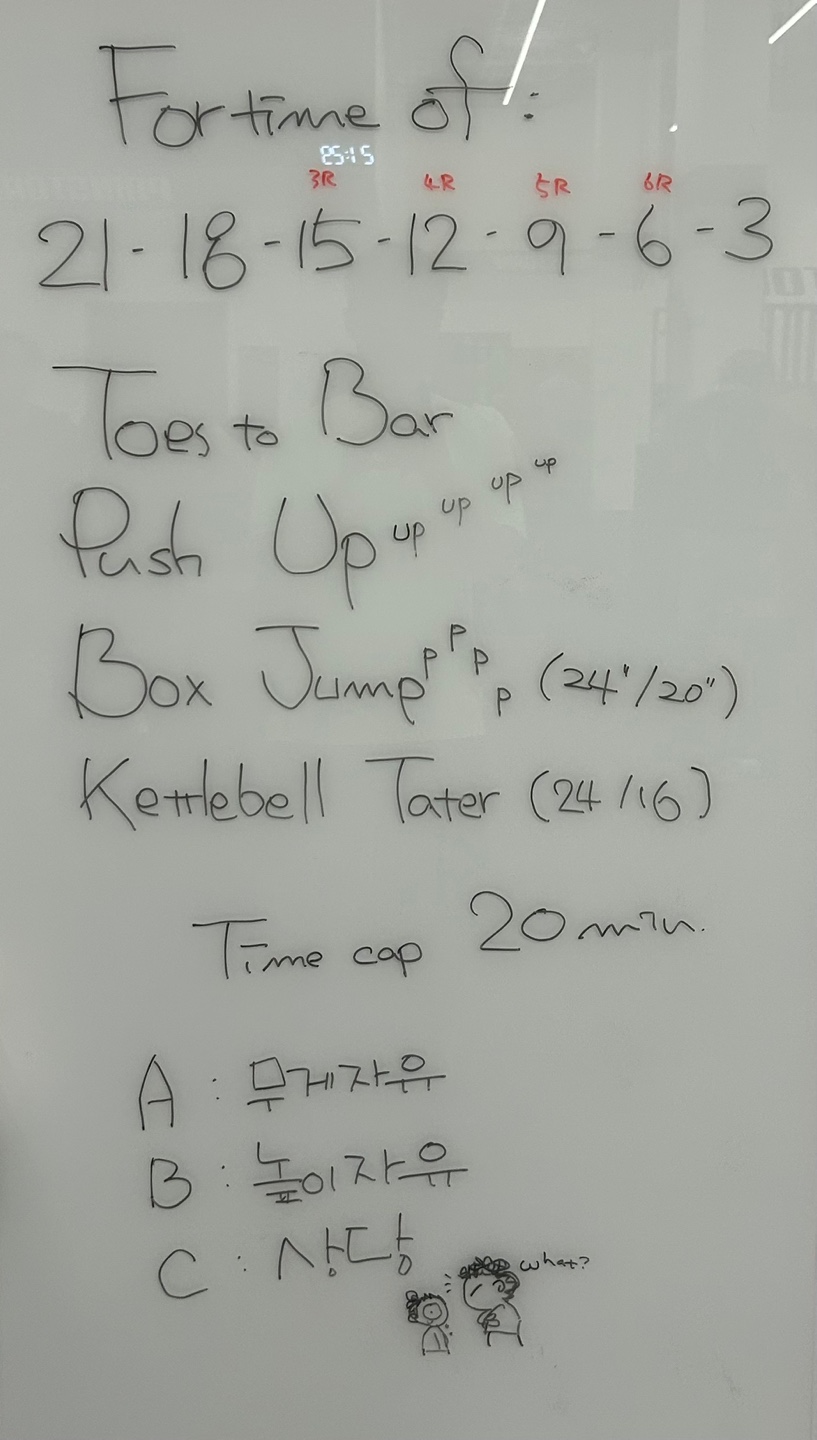 For time of :
25:15
3R 4R 5R 6R
21 - 18 - 15 - 12 - 9 - 6 - 3
Toes to Bar
Push Up up up up up
Box Jump p p p p (24"/20")
Kettlebell Tater (24/16)
Time cap 20 min.
A : 무게자유
B : 높이자유
C : 상당
what?